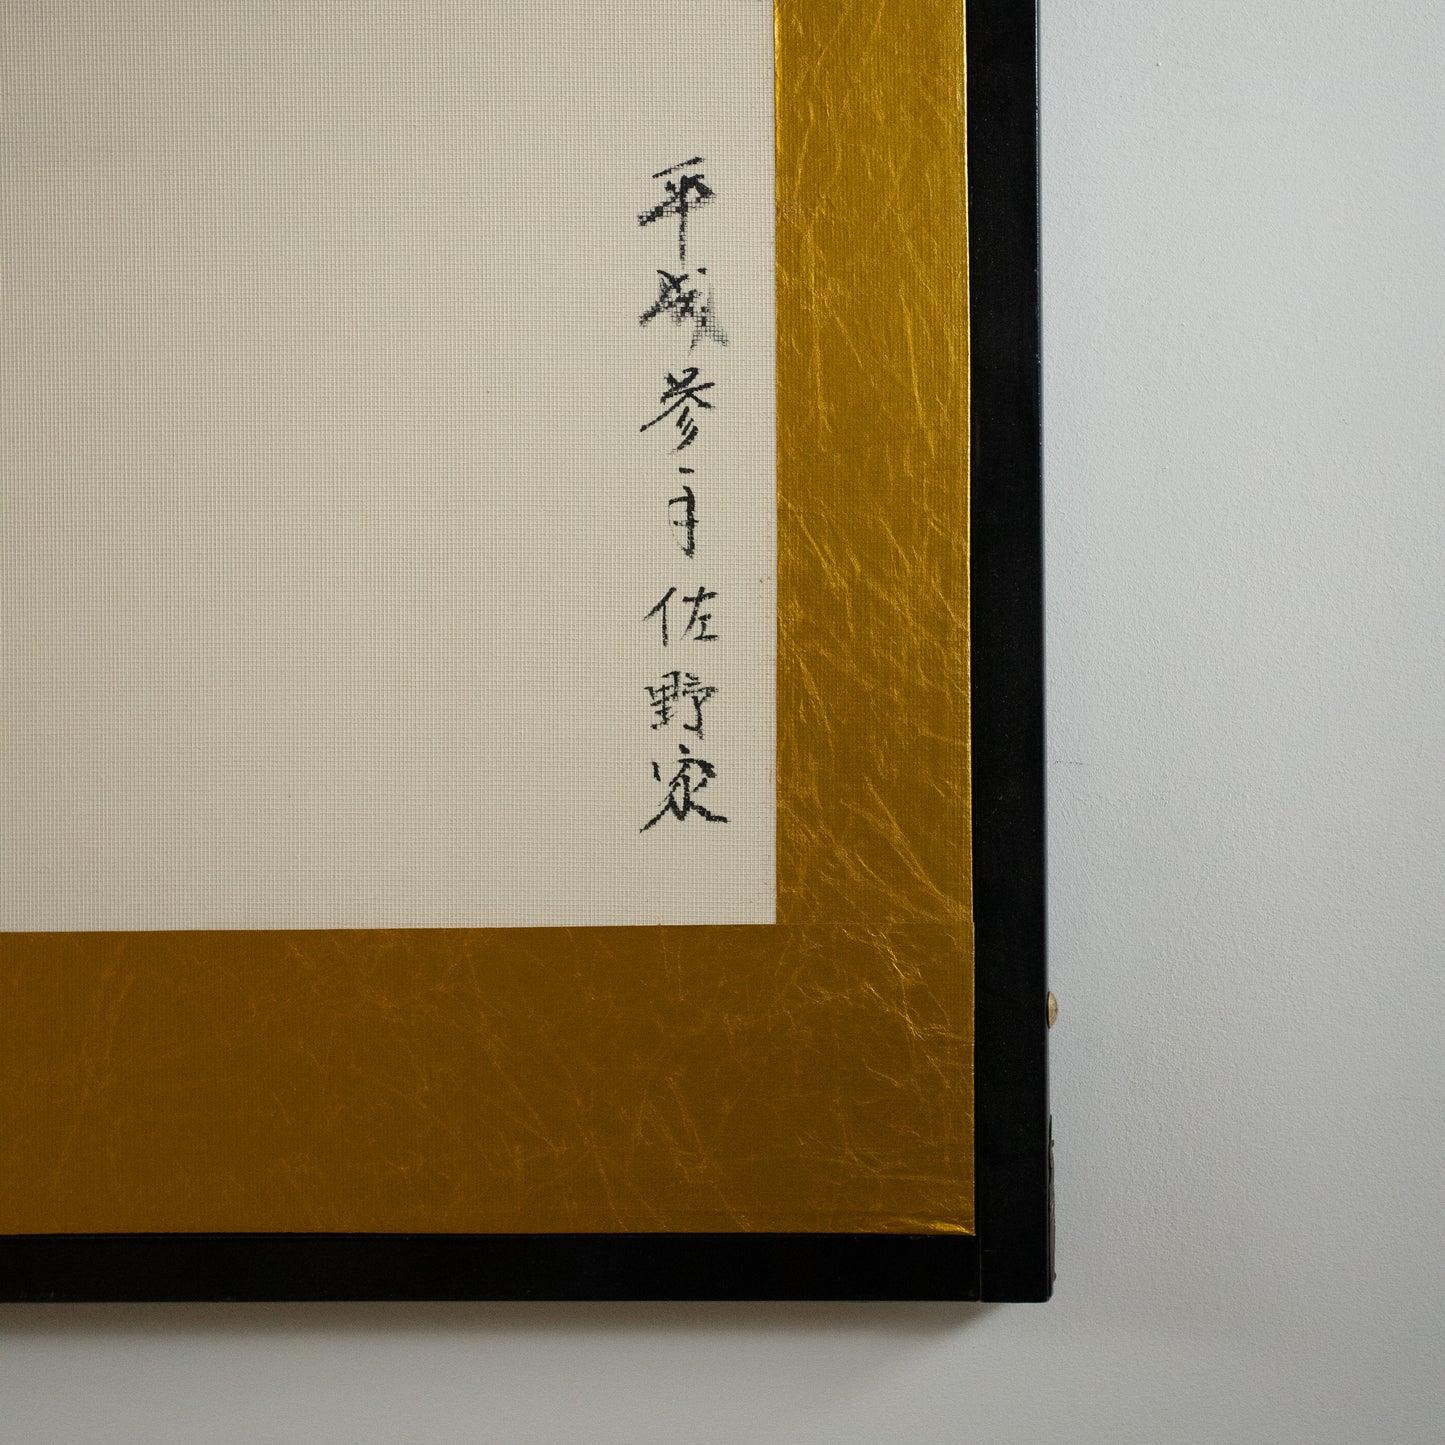 平成参年佐野家